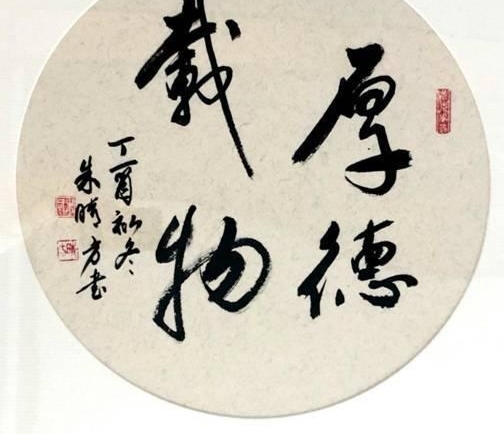 厚德
載物
丁酉初冬
朱方书